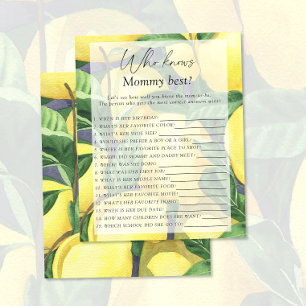 Who knows
Mommy best?
Let's see how well you know the mom-to-be.
The person who gets the most correct answers wins!
1. WHEN IS HER BIRTHDAY?
2. WHAT'S HER FAVORITE COLOR?
3. WHAT'S HER SHOE SIZE?
4. WOULD SHE PREFER A BOY OR A GIRL?
5. WHERE IS HER FAVORITE PLACE TO SHOP?
6. WHERE DID MOMMY AND DADDY MEET?
7. WHERE WAS SHE BORN?
8. WHAT IS HER MIDDLE NAME?
9. WHAT'S HER FAVORITE FOOD?
10. WHAT'S HER FAVORITE
11. WHEN IS HER DUE DATE?
12. HOW MANY CHILDREN DOES SHE WANT?
13. WHICH SCHOOL DID SHE GO TO?